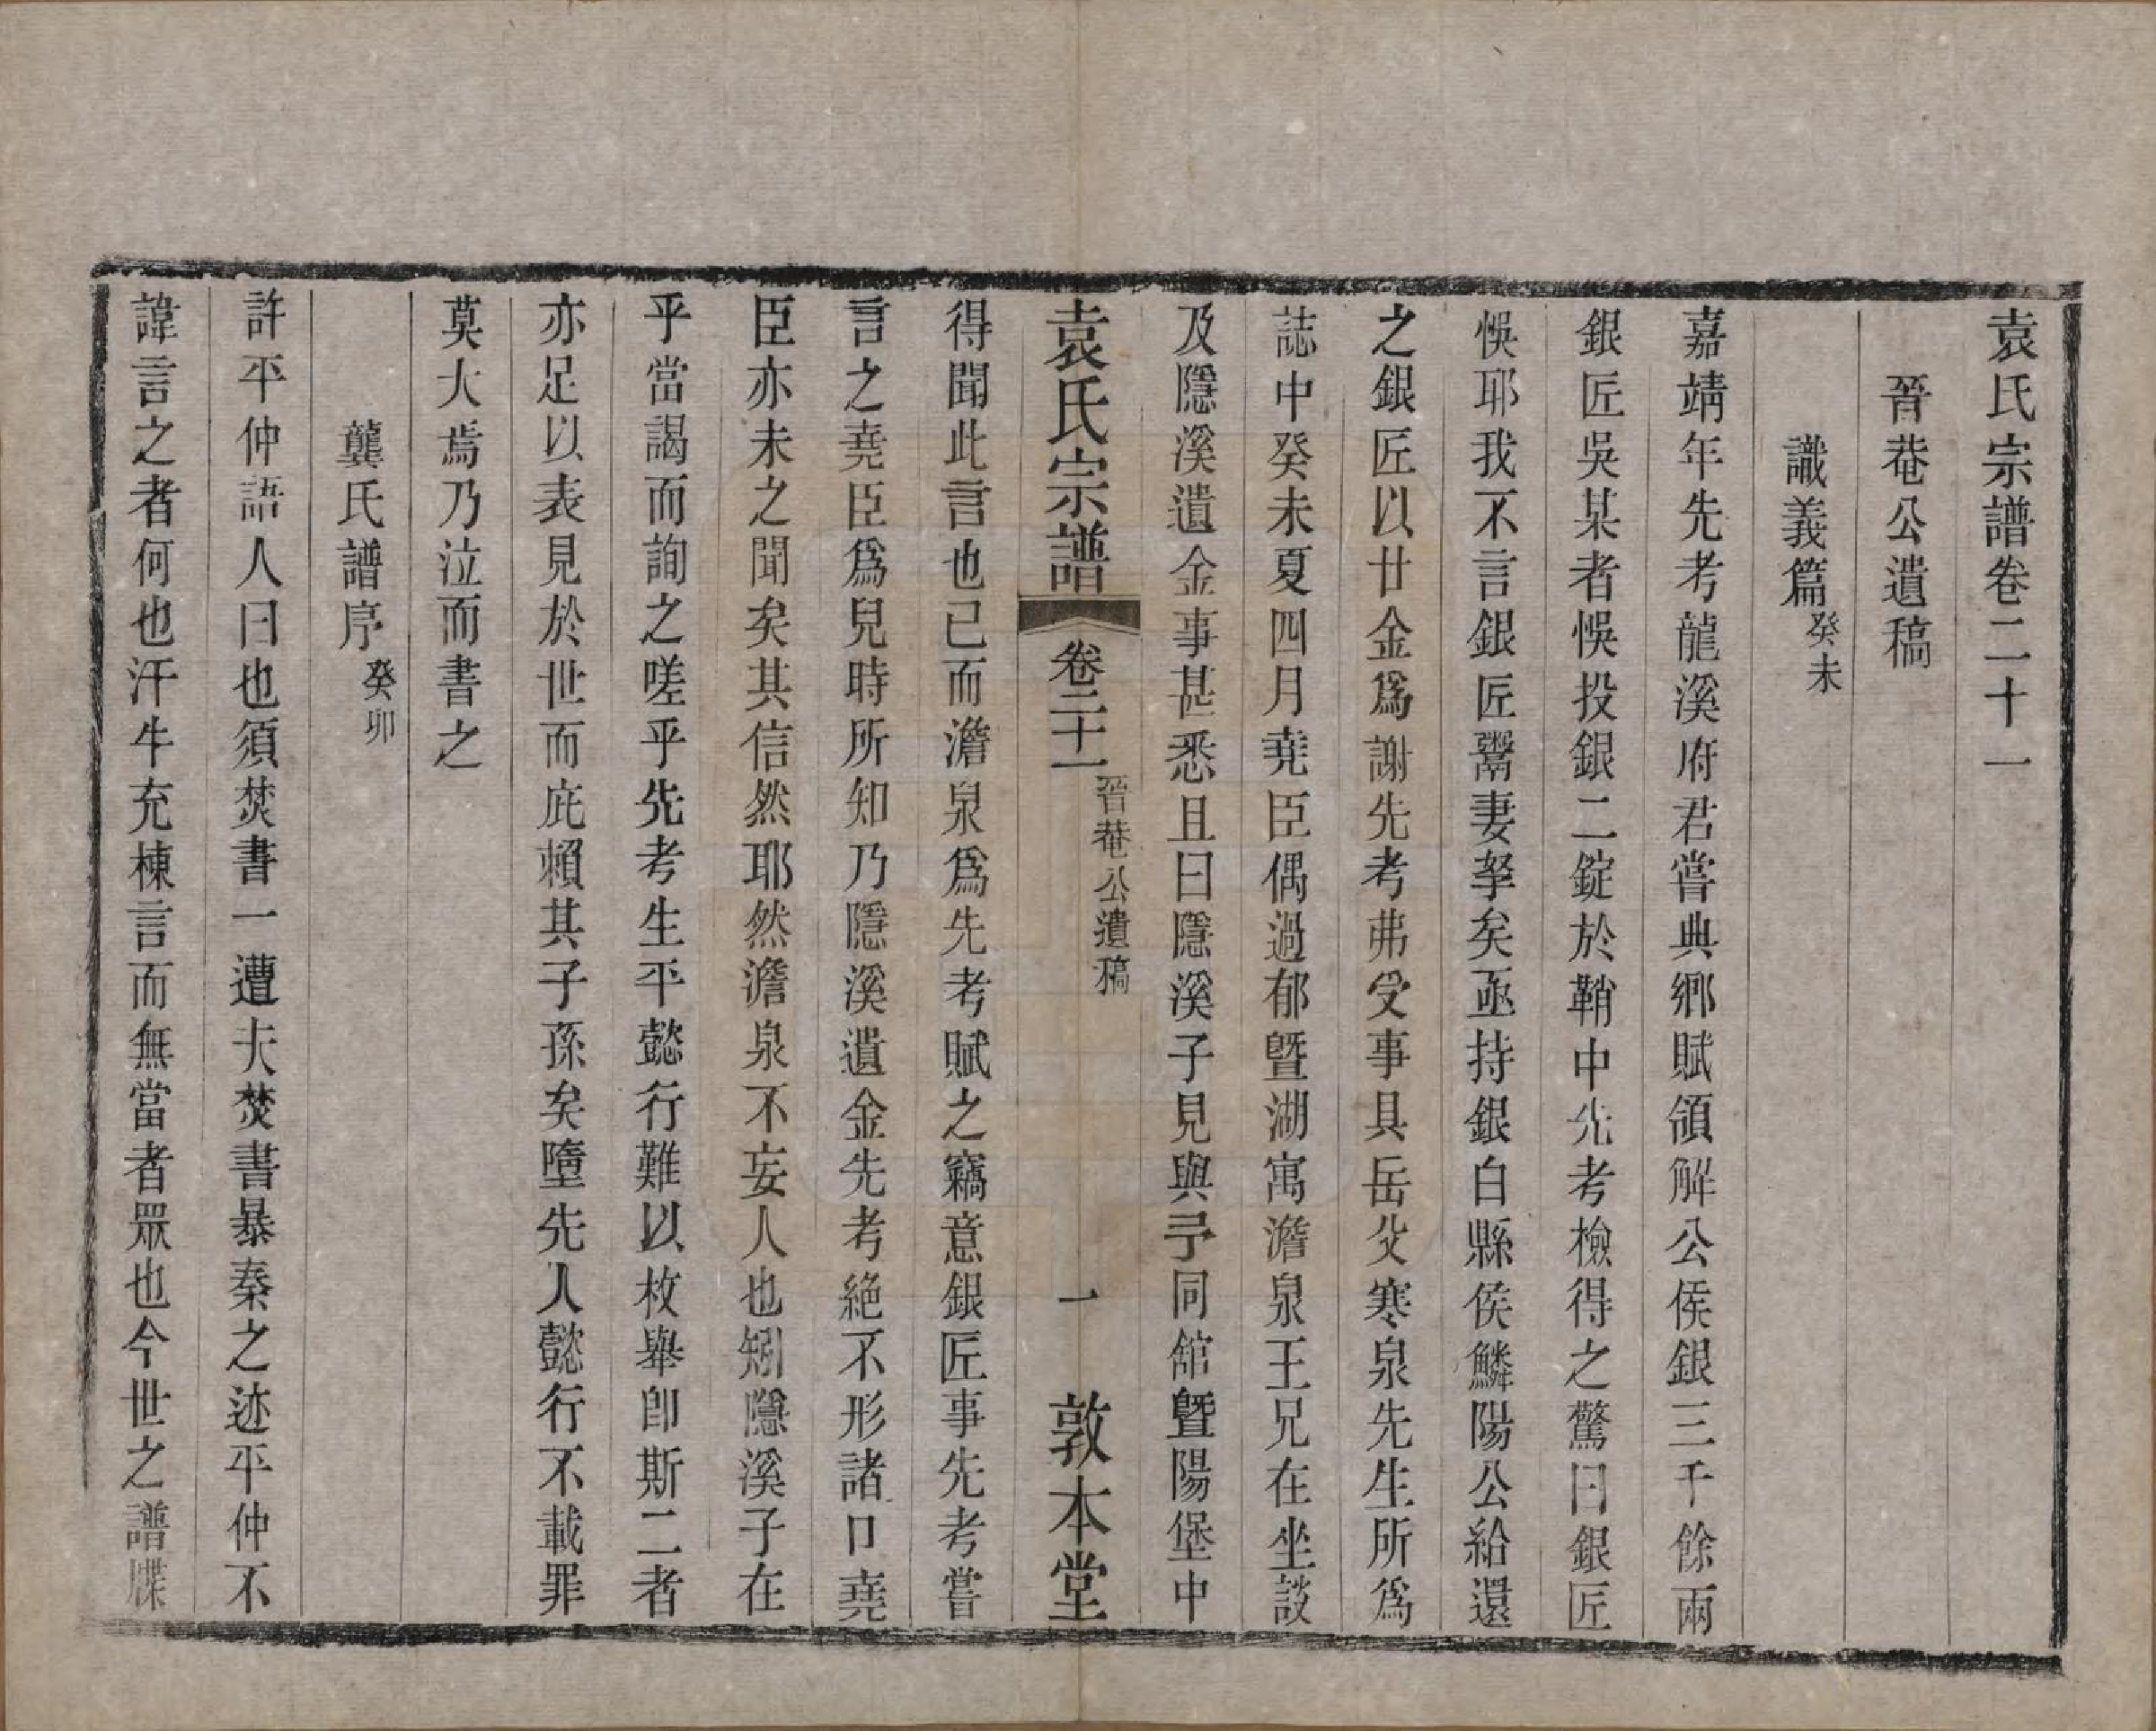 袁氏宗譜卷二十一
晉菴公遺稿
識義篇癸未
嘉靖年先考龍溪府君嘗典鄉賦領解公侯銀三千餘兩
銀匠吳某者悞投銀二錠於鞘中先考檢得之驚曰銀匠
悞耶我不言銀匠鬻妻孥矣亟持銀白縣侯鱗陽公給還
之銀匠以廿金爲謝先考弗受事具岳父寒泉先生所爲
誌中癸未夏四月堯臣偶過郁暨湖寓澹泉王兄在坐談
及隱溪遺金事甚悉且曰隱溪子見與予同舘暨陽堡中
袁氏宗譜
卷二十一
晉菴公遺稿
一
敦本堂
得聞此言也已而澹泉爲先考賦之竊意銀匠事先考嘗
言之堯臣爲兒時所知乃隱溪遺金先考絕不形諸口堯
臣亦未之聞矣其信然耶然澹泉不妄人也矧隱溪子在
乎當謁而詢之嗟乎先考生平懿行難以枚舉卽斯二者
亦足以表見於世而庇賴其子孫矣墮先人懿行不載罪
莫大焉乃泣而書之
龔氏譜序癸卯
許平仲語人曰也須焚書一遭夫焚書暴秦之迹平仲不
諱言之者何也汗牛充棟言而無當者眾也今世之譜牒